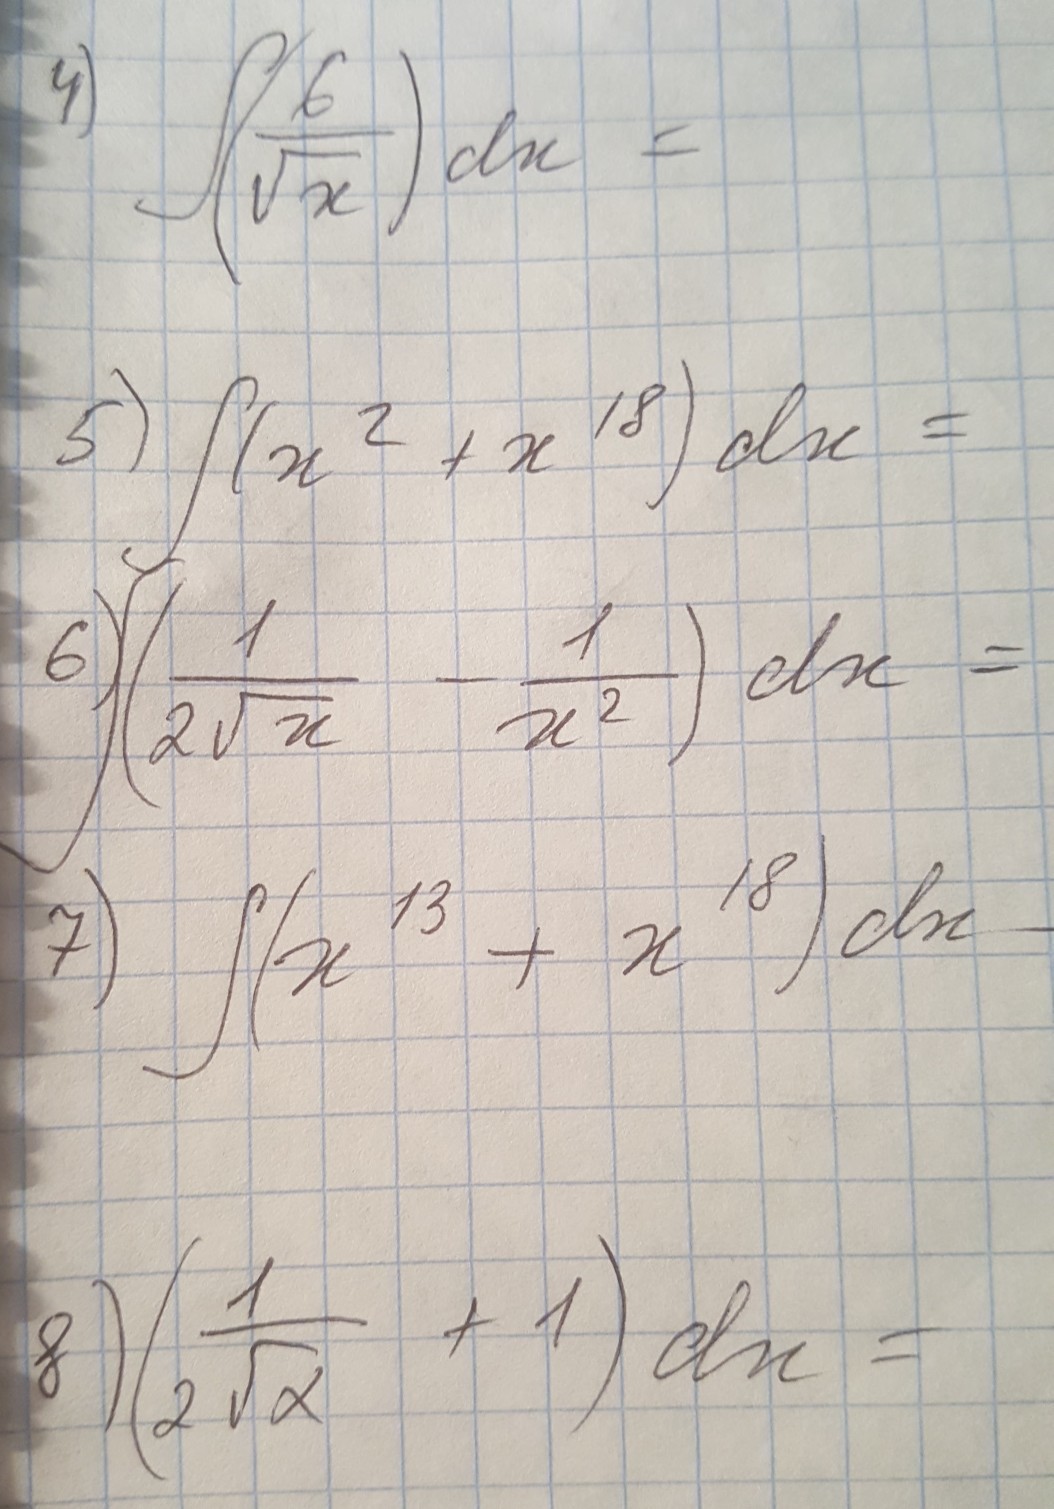 4) ∫(6/√x) dx =
5) ∫(x² + x¹⁸) dx =
6) ∫(1/(2√x) - 1/x²) dx =
7) ∫(x¹³ + x¹⁸) dx -
8) (1/(2√x) + 1) dx =